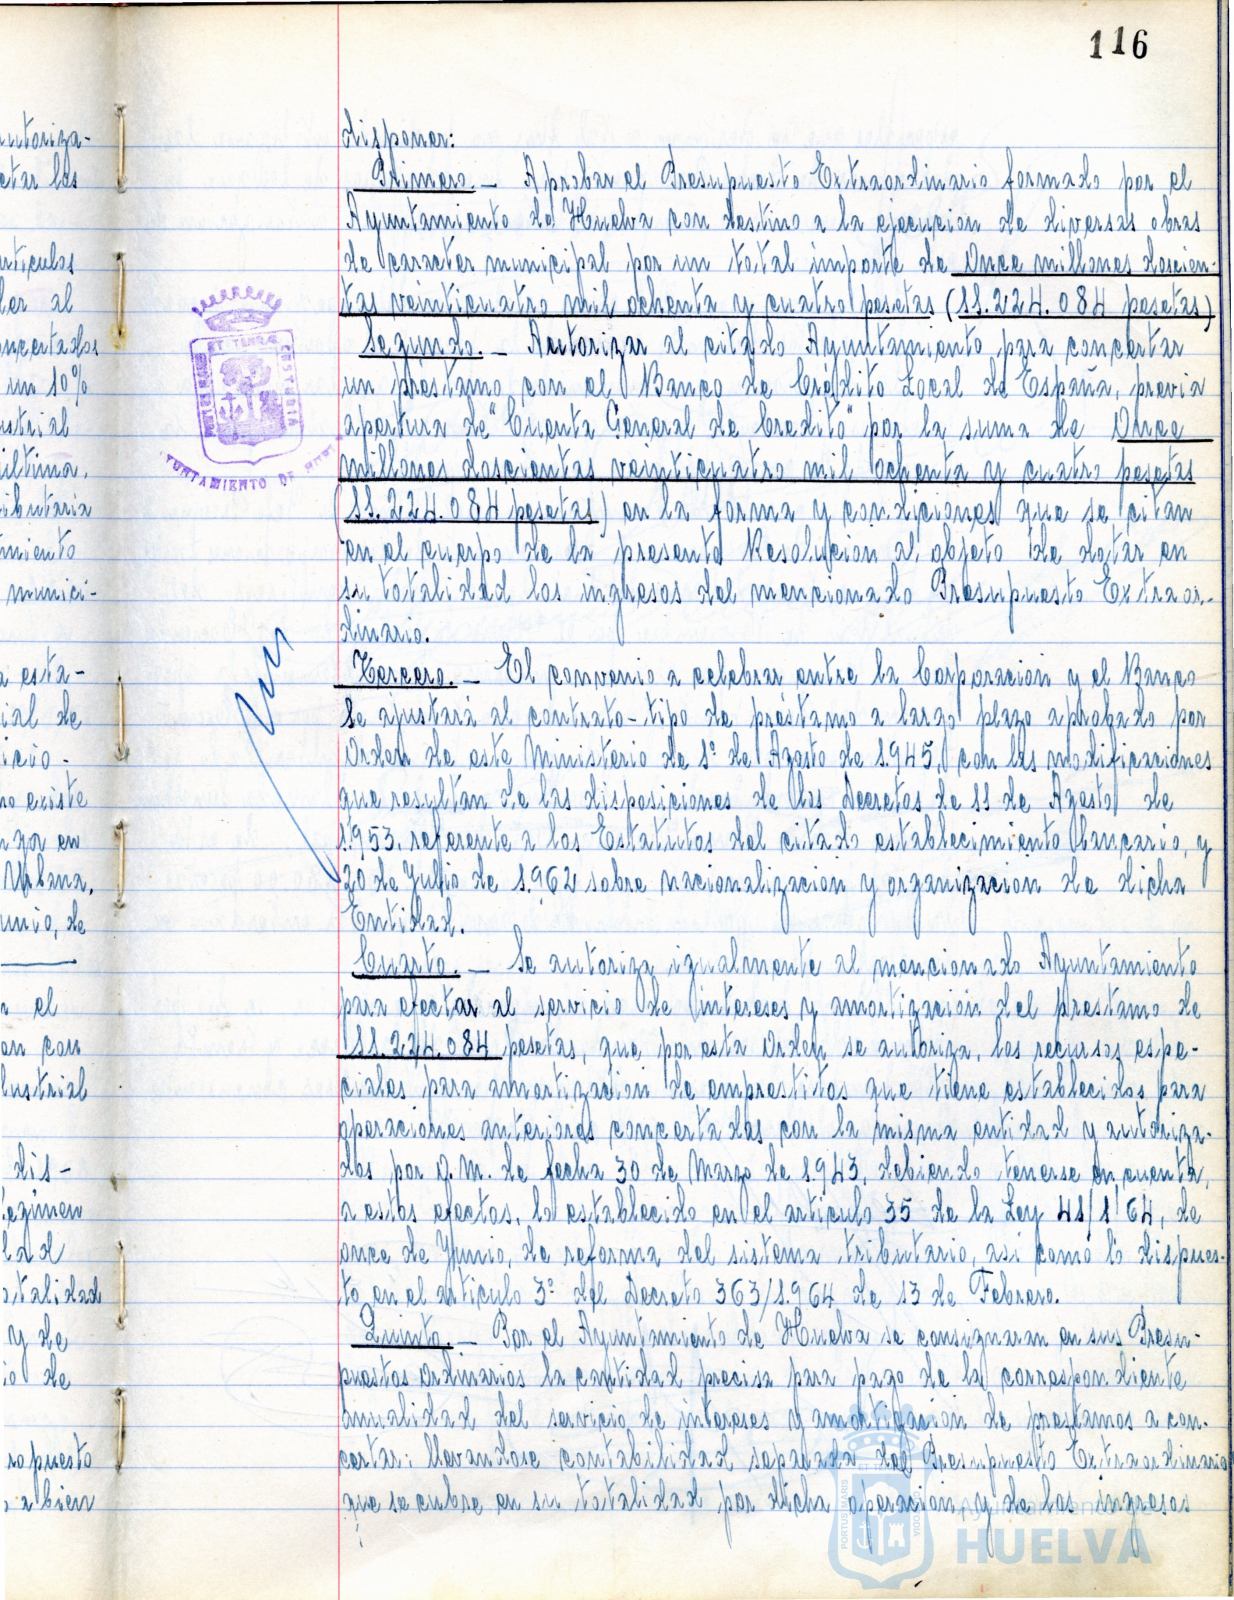 116
utoriza-
ctar los
rtículos
ber al
oncertados
un 10%
ustrial
última,
ibutaria
miento
munici-
a esta-
ial de
icio-
no existe
Urbana,
unio, de
el
on con
dustrial
dis-
Régimen
lad
otalidad
y de
io de
ropuesto
a bien
disponer:
Primero.- Aprobar el Presupuesto Extraordinario formado por el
Ayuntamiento de Huelva con destino a la ejecución de diversas obras
de caracter municipal por un total importe de Once millones doscien-
tas veinticuatro mil ochenta y cuatro pesetas (11.224.084 pesetas)
Segundo.- Autorizar al citado Ayuntamiento para concertar
un préstamo con el Banco de Crédito Local de España, previa
apertura de "Cuenta General de Credito" por la suma de Once
millones doscientas veinticuatro mil ochenta y cuatro pesetas
(11.224.084 pesetas) en la forma y condiciones que se citan
en el cuerpo de la presente Resolución al objeto de dotar en
su totalidad los ingresos del mencionado Presupuesto Extraor-
dinario.
Tercero.- El convenio a celebrar entre la Corporación y el Banco
se ajustará al contrato-tipo de préstamo a largo plazo aprobado por
Orden de este Ministerio de 1º de Agosto de 1.945, con las modificaciones
que resultan de las disposiciones de los Decretos de 11 de Agosto de
1.953, referente a los Estatutos del citado establecimiento bancario, y
20 de Julio de 1.962 sobre nacionalización y organización de dicha
Entidad.
Cuarto.- Se autoriza igualmente al mencionado Ayuntamiento
para afectar al servicio de intereses y amortización del prestamo de
11.224.084 pesetas, que por esta Orden se autoriza, los recursos espe-
ciales para amortización de emprestitos que tiene establecidos para
operaciones anteriores concertadas con la misma entidad y autoriza-
das por O.M. de fecha 30 de Marzo de 1.943, debiendo tenerse en cuenta,
a estos efectos, lo establecido en el artículo 35 de la Ley 41/1964, de
once de Junio, de reforma del sistema tributario, así como lo dispues-
to en el artículo 3º del Decreto 363/1.964 de 13 de Febrero.
Quinto.- Por el Ayuntamiento de Huelva se consignaran en sus Presu-
puestos Ordinarios la cantidad precisa para pago de la correspondiente
anualidad del servicio de intereses y amortización de prestamos a con-
certar; llevandose contabilidad separada del Presupuesto Extraordinario
que se cubre en su totalidad por dicha operación y de los ingresos
PORTUS MARIS
Ayuntamiento de
HUELVA